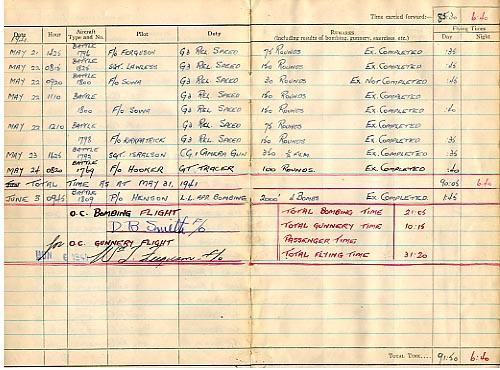 Time carried forward:— 85.30 6.40
Date Hour Aircraft Type and No. Pilot Duty Remarks Flying Times
(Including results of bombing, gunnery, exercises, etc.) Day Night
MAY 21 BATTLE F/O FERGUSON G3 REL SPEED 75 ROUNDS EX. COMPLETED .35
MAY 22 BATTLE SGT. LAWLESS G3 REL SPEED 150 ROUNDS EX. COMPLETED .35
MAY 22 0920 BATTLE 1800 F/O SOWA G3 REL SPEED 30 ROUNDS EX. NOT COMPLETED
MAY 22 1110 BATTLE G3 REL SPEED 150 ROUNDS EX. COMPLETED
1800 F/O SOWA G3 REL SPEED 150 ROUNDS EX. COMPLETED .40
MAY 22 1210 BATTLE G3 REL SPEED 75 ROUNDS
1798 F/O KIRKPATRICK G3 REL SPEED 150 ROUNDS EX. COMPLETED .35
MAY 23 BATTLE SGT. CG1 CAMERA GUN FILM EX. COMPLETED .35
MAY 24 0820 BATTLE 1769 F/O HOOKER GT TRACER 100 ROUNDS EX. COMPLETED .40
TOTAL TIME AS AT MAY 31, 1941 90.05 6.40
JUNE 3 0945 BATTLE 1809 P/O HENSON L.L. APP. BOMBING 6 BOMBS EX. COMPLETED 1.45
O.C. BOMBING FLIGHT TOTAL BOMBING TIME 21.05
D B Smith F/O TOTAL GUNNERY TIME 10.15
for O.C. GUNNERY FLIGHT PASSENGER TIME
F/O TOTAL FLYING TIME 31.20
TOTAL TIME.... 91.50 6.40